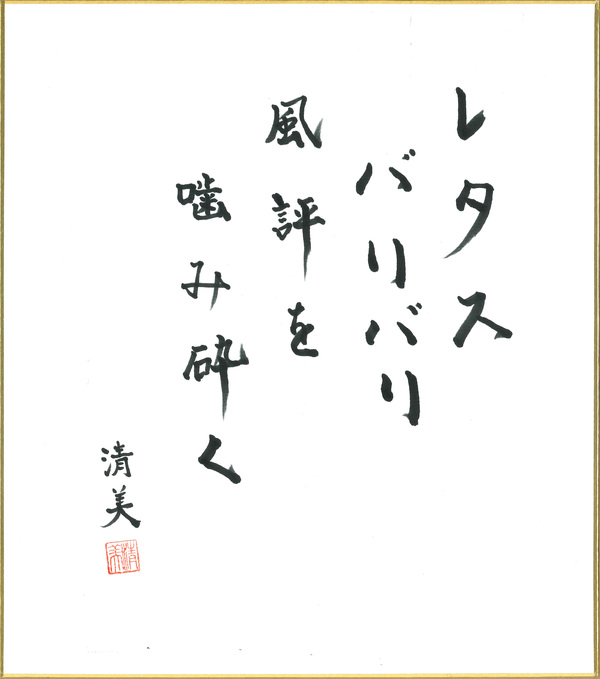 レタス
バリバリ
風評を
噛み砕く
清美
清美